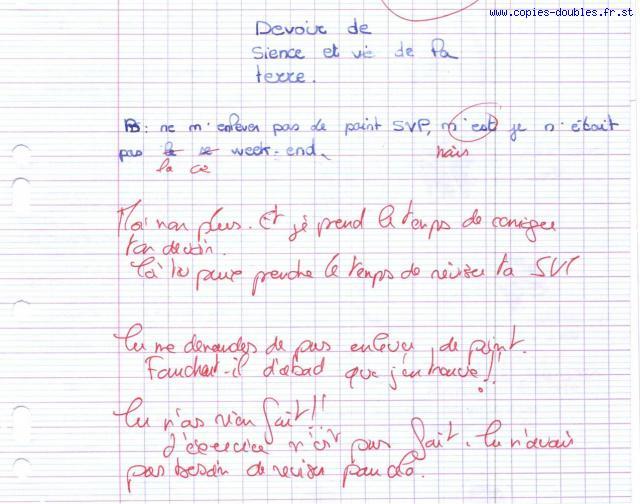 www.copies-doubles.fr.st
Devoir de
Sience et vie de la
terre.
PS: ne m'enlever pas de point SVP, m'est je n'était
pas le se week-end.
la ce mais
Moi non plus. Et j'é prend le temps de corriger
ton devoir.
là tu peux prendre le temps de réviser ta SVT
Tu me demandes de pas enlever de point.
Faudrait-il d'abad que j'en trouve!!
Tu n'as rien fait!!
L'exercice n'est pas fait. Tu n'avais
pas besoin de reviser